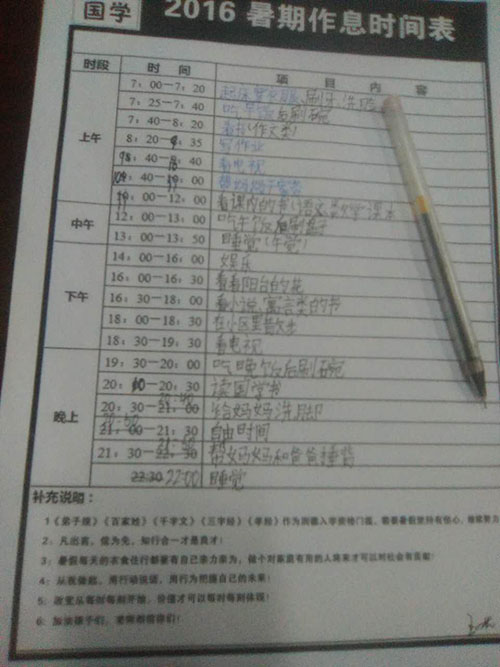 国学 2016 暑期作息时间表
时段 时 间 项 目 内 容
上午
7：00—7：20 起床穿衣服、刷牙、洗脸
7：25—7：40 吃早饭后刷碗
7：40—8：20 看书(作文类)
8：20— :35 写作业
:40— :40 看电视
:40— :00 帮妈妈
:00—12：00 看课内的书(语文、数学课本
中午
12：00—13：00 吃午饭后刷盘子
13：00—13：50 睡觉(午觉)
下午
14：00—16：00 娱乐
16：00—16：30 看看阳台的花
16：30—18：00 看小说 寓言类的书
18：00—18：30 在小区里散步
18：30—19：30 看电视
晚上
19：30—20：00 吃晚饭后刷碗
20： —20：30 读国学书
20：30—21：00 20:40 给妈妈洗脚
21：00—21：30 20:50 自由时间
21：30—22：30 帮妈妈和爸爸捶背
22:30 22:00 睡觉
补充说明：
1《弟子规》《百家姓》《千字文》《三字经》《孝经》作为国德入学资格门槛，需要暑假坚持有恒心，继续努力
2：凡出言，信为先，知行合一才是真才！
3：暑假每天的衣食住行都要有自己亲力亲为，做个对家庭有用的人将来才可以对社会有贡献！
4：从我做起，用行动说话，用行为把握自己的未来！
5：改变从每刻每刻开始，价值才可以每时每刻体现！
6：加油孩子们，老师相信你们！